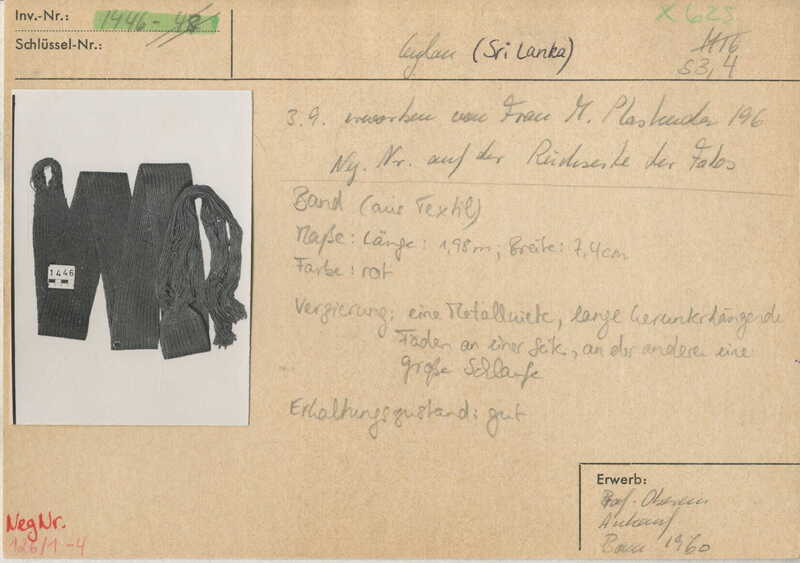 Inv.-Nr.: 1446-48
Schlüssel-Nr.:
X 623
Ceylon (Sri Lanka)
53,4
3.9. erworben von Frau M. 196
Neg. Nr. auf der Rückseite der Fotos
Band (aus Textil)
Maße: Länge: 1,98m; Breite: 7,4cm
Farbe: rot
Verzierung: eine Metallniete, lange herunterhängende
Fäden an einer Seite, an der anderen eine
große Schlaufe
Erhaltungszustand: gut
1446
Erwerb:
Prof. Oberem
Ankauf
Bonn 1960
Neg Nr.
126/1-4